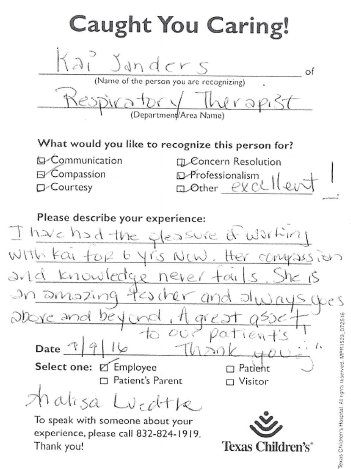 Caught You Caring!
Kai Sanders of
(Name of the person you are recognizing)
Respiratory Therapist
(Department/Area Name)
What would you like to recognize this person for?
Communication Concern Resolution
Compassion Professionalism
Courtesy Other excellent!
Please describe your experience:
I have had the pleasure of working
with Kai for 6 yrs now. Her compassion
and knowledge never fails. She is
an amazing teacher and always goes
above and beyond. A great asset
to our patient's
Date 9/9/16 Thank you
Select one: Employee Patient
Patient's Parent Visitor
Shalisa Luedtke
To speak with someone about your
experience, please call 832-824-1919.
Thank you!
Texas Children's